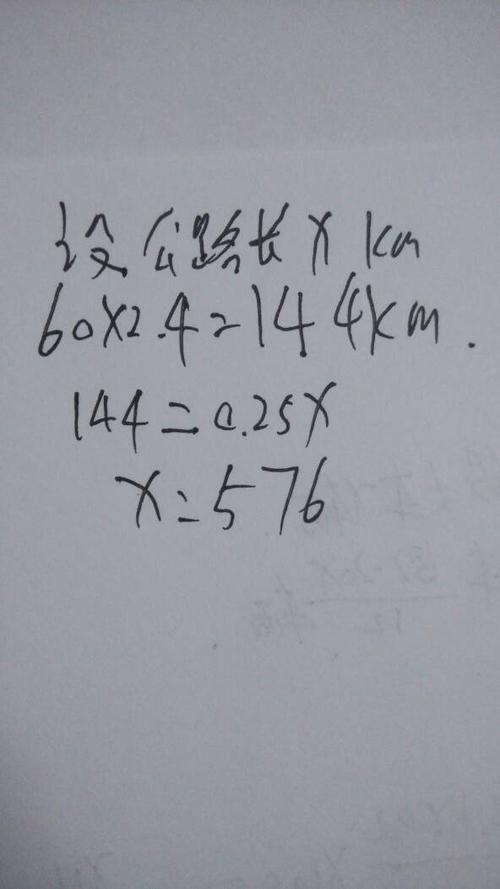 设公路长 x km
60×2.4=144km.
144=0.25x
x=576